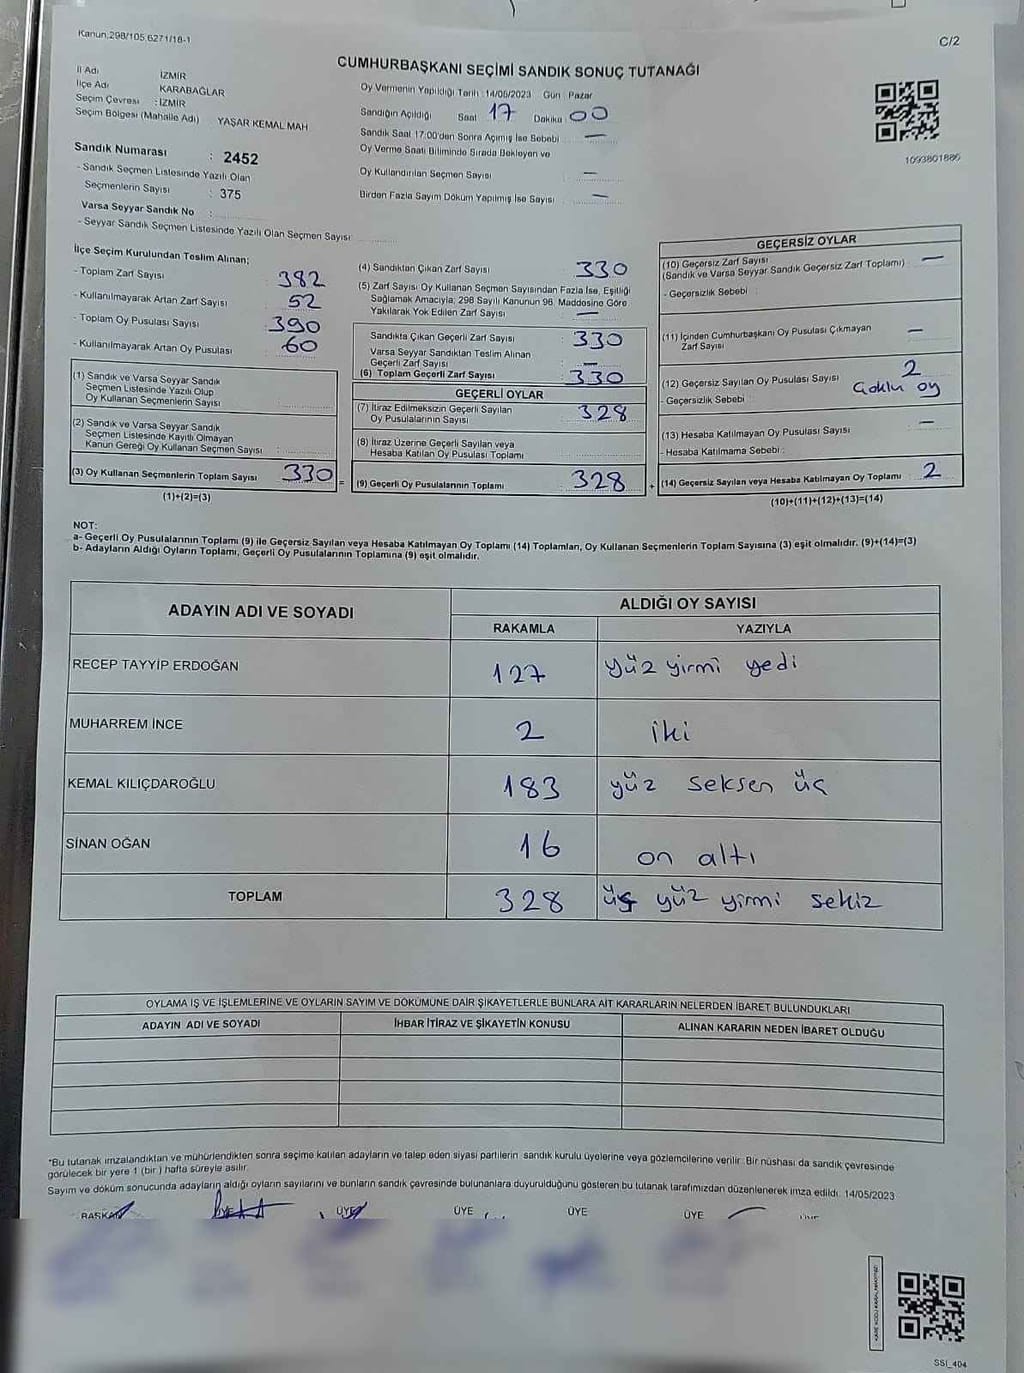 Kanun,298/105,6271/18-1
C/2
CUMHURBAŞKANI SEÇİMİ SANDIK SONUÇ TUTANAĞI
İl Adı : İZMİR
İlçe Adı : KARABAĞLAR
Seçim Çevresi : İZMİR
Seçim Bölgesi (Mahalle Adı) YAŞAR KEMAL MAH
Sandık Numarası : 2452
- Sandık Seçmen Listesinde Yazılı Olan
Seçmenlerin Sayısı : 375
Varsa Seyyar Sandık No :
- Seyyar Sandık Seçmen Listesinde Yazılı Olan Seçmen Sayısı
Oy Vermenin Yapıldığı Tarih : 14/05/2023 Gün : Pazar
Sandığın Açıldığı Saat 17 Dakika 00
Sandık Saat 17:00'den Sonra Açımış İse Sebebi —
Oy Verme Saati Bitiminde Sırada Bekleyen ve
Oy Kullandırılan Seçmen Sayısı —
Birden Fazla Sayım Döküm Yapılmış İse Sayısı —
1093801886
İlçe Seçim Kurulundan Teslim Alınan;
- Toplam Zarf Sayısı 382
- Kullanılmayarak Artan Zarf Sayısı 52
- Toplam Oy Pusulası Sayısı 390
- Kullanılmayarak Artan Oy Pusulası 60
(1) Sandık ve Varsa Seyyar Sandık
Seçmen Listesinde Yazılı Olup
Oy Kullanan Seçmenlerin Sayısı
(2) Sandık ve Varsa Seyyar Sandık
Seçmen Listesinde Kayıtlı Olmayan
Kanun Gereği Oy Kullanan Seçmen Sayısı :
(3) Oy Kullanan Seçmenlerin Toplam Sayısı 330 =
(1)+(2)=(3)
(4) Sandıktan Çıkan Zarf Sayısı 330
(5) Zarf Sayısı Oy Kullanan Seçmen Sayısından Fazla İse, Eşitliği
Sağlamak Amacıyla; 298 Sayılı Kanunun 98. Maddesine Göre
Yakılarak Yok Edilen Zarf Sayısı —
Sandıkta Çıkan Geçerli Zarf Sayısı 330
Varsa Seyyar Sandıktan Teslim Alınan
Geçerli Zarf Sayısı —
(6) Toplam Geçerli Zarf Sayısı 330
GEÇERLİ OYLAR
(7) İtiraz Edilmeksizin Geçerli Sayılan
Oy Pusulalarının Sayısı 328
(8) İtiraz Üzerine Geçerli Sayılan veya
Hesaba Katılan Oy Pusulası Toplamı
(9) Geçerli Oy Pusulalarının Toplamı 328 +
GEÇERSİZ OYLAR
(10) Geçersiz Zarf Sayısı —
(Sandık ve Varsa Seyyar Sandık Geçersiz Zarf Toplamı)
- Geçersizlik Sebebi :
(11) İçinden Cumhurbaşkanı Oy Pusulası Çıkmayan —
Zarf Sayısı
(12) Geçersiz Sayılan Oy Pusulası Sayısı 2
- Geçersizlik Sebebi : Çoklu oy
(13) Hesaba Katılmayan Oy Pusulası Sayısı —
- Hesaba Katılmama Sebebi :
(14) Geçersiz Sayılan veya Hesaba Katılmayan Oy Toplamı : 2
(10)+(11)+(12)+(13)=(14)
NOT:
a- Geçerli Oy Pusulalarının Toplamı (9) ile Geçersiz Sayılan veya Hesaba Katılmayan Oy Toplamı (14) Toplamları, Oy Kullanan Seçmenlerin Toplam Sayısına (3) eşit olmalıdır. (9)+(14)=(3)
b- Adayların Aldığı Oyların Toplamı, Geçerli Oy Pusulalarının Toplamına (9) eşit olmalıdır.
ADAYIN ADI VE SOYADI ALDIĞI OY SAYISI
RAKAMLA YAZIYLA
RECEP TAYYİP ERDOĞAN 127 yüz yirmi yedi
MUHARREM İNCE 2 iki
KEMAL KILIÇDAROĞLU 183 yüz seksen üç
SİNAN OĞAN 16 on altı
TOPLAM 328 üç yüz yirmi sekiz
OYLAMA İŞ VE İŞLEMLERİNE VE OYLARIN SAYIM VE DÖKÜMÜNE DAİR ŞİKAYETLERLE BUNLARA AİT KARARLARIN NELERDEN İBARET BULUNDUKLARI
ADAYIN ADI VE SOYADI İHBAR İTİRAZ VE ŞİKAYETİN KONUSU ALINAN KARARIN NEDEN İBARET OLDUĞU
*Bu tutanak imzalandıktan ve mühürlendikten sonra seçime katılan adayların ve talep eden siyasi partilerin sandık kurulu üyelerine veya gözlemcilerine verilir. Bir nüshası da sandık çevresinde
görülecek bir yere 1 (bir ) hafta süreyle asılır.
Sayım ve döküm sonucunda adayların aldığı oyların sayılarını ve bunların sandık çevresinde bulunanlara duyurulduğunu gösteren bu tutanak tarafımızdan düzenlenerek imza edildi. 14/05/2023
BAŞKAN ÜYE ÜYE ÜYE ÜYE ÜYE
SSİ_404